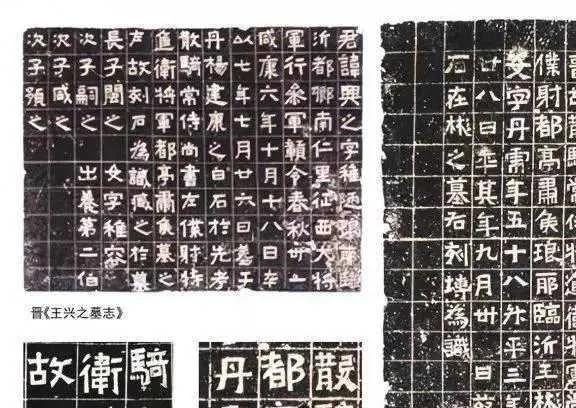 君諱興之字稚陋琅耶臨
沂都鄉南仁里征西大將
軍行參軍贛令春秋卅一
咸康六年十月十八日卒
以七年七月廿六日葬于
丹楊建康之白石於先考
散騎常侍尚書左僕射特
進衛將軍都亭肅侯墓之
左故刻石為識臧之於墓
長子閩之 女字稚容
次子嗣之 出養第二伯
次子咸之
次子預之
晋《王兴之墓志》
晉故散騎常侍特進衛
僕射都亭肅侯琅耶臨沂王彬
女字丹虎年五十八升平三年
廿八日卒其年九月卅日
石在彬之墓右刻塼為識
騎
衛
故
散
都
丹